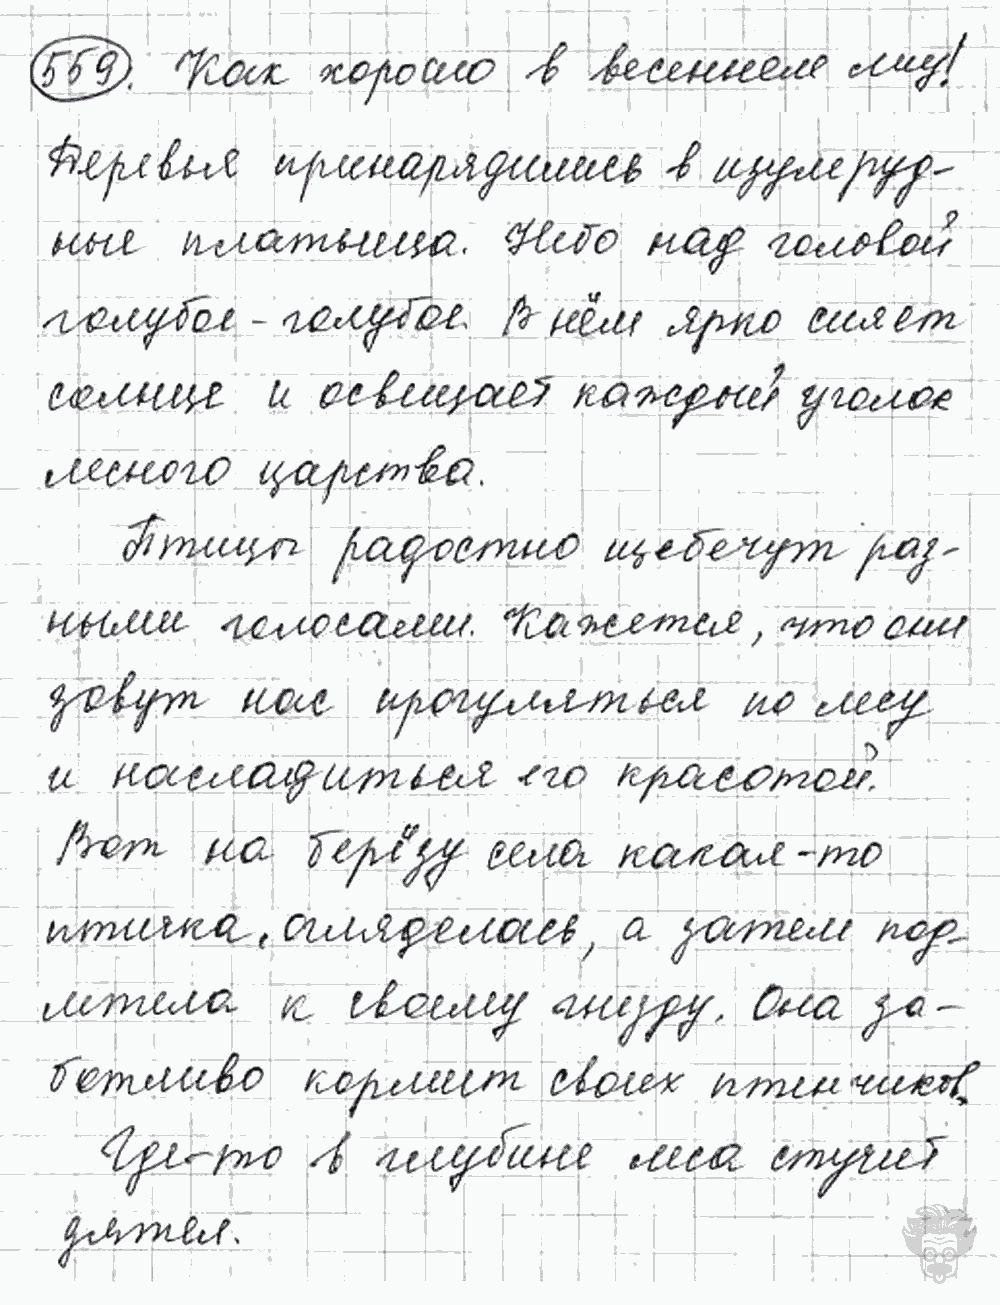 559. Как хорошо в весеннем лесу!
Деревья принарядились в изумруд-
ные платьица. Небо над головой
голубое-голубое. В нём ярко сияет
солнце и освещает каждый уголок
лесного царства.
Птицы радостно щебечут раз-
ными голосами. Кажется, что они
зовут нас прогуляться по лесу
и насладиться его красотой.
Вот на берёзу села какая-то
птичка, огляделась, а затем под-
летела к своему гнезду. Она за-
ботливо кормит своих птенчиков.
Где-то в глубине леса стучит
дятел.